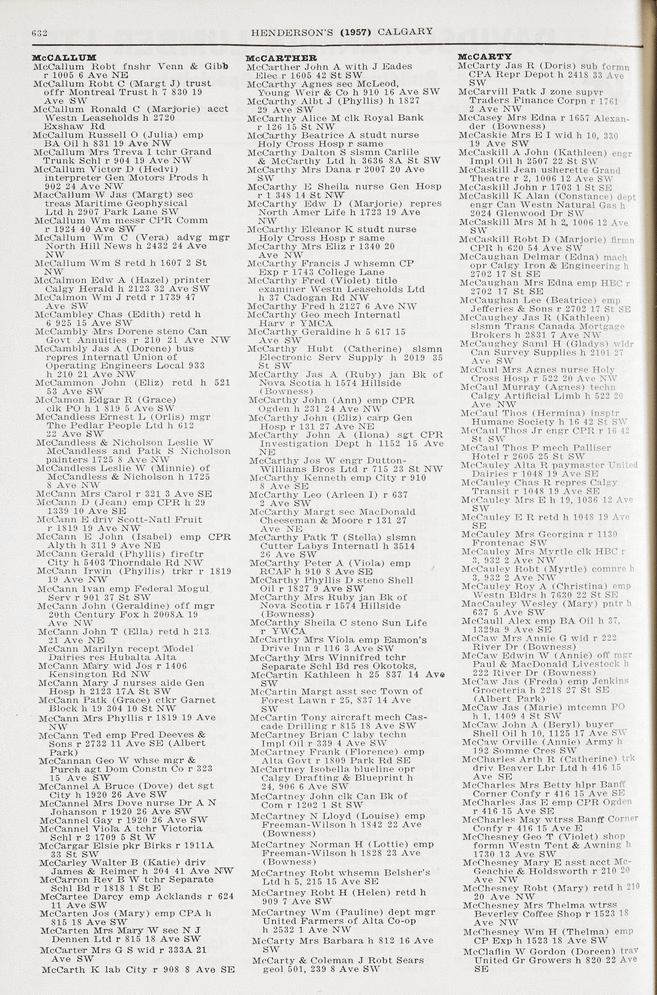 632
HENDERSON'S (1957) CALGARY
McCALLUM
McCallum Robt fnshr Venn & Gibb
r 1005 6 Ave NE
McCallum Robt C (Margt J) trust
offr Montreal Trust h 7 830 19
Ave SW
McCallum Ronald C (Marjorie) acct
Westn Leaseholds h 2720
Exshaw Rd
McCallum Russell O (Julia) emp
BA Oil h 831 19 Ave NW
McCallum Mrs Treva I tchr Grand
Trunk Schl r 904 19 Ave NW
McCallum Victor D (Hedvi)
interpreter Gen Motors Prods h
902 24 Ave NW
MacCallum W Jas (Margt) sec
treas Maritime Geophysical
Ltd h 2907 Park Lane SW
McCallum Wm messr CPR Comm
r 1924 40 Ave SW
McCallum Wm C (Vera) advg mgr
North Hill News h 2432 24 Ave
NW
McCallum Wm S retd h 1607 2 St
NW
McCalmon Edw A (Hazel) printer
Calgy Herald h 2123 32 Ave SW
McCalmon Wm J retd r 1739 47
Ave SW
McCambley Chas (Edith) retd h
6 925 15 Ave SW
McCambly Mrs Dorene steno Can
Govt Annuities r 210 21 Ave NW
McCambly Jas A (Dorene) bus
repres Internatl Union of
Operating Engineers Local 933
h 210 21 Ave NW
McCammon John (Eliz) retd h 521
53 Ave SW
McCamon Edgar R (Grace)
clk PO h 1 819 5 Ave SW
McCandless Ernest L (Orlis) mgr
The Pedlar People Ltd h 612
22 Ave SW
McCandless & Nicholson Leslie W
McCandless and Patk S Nicholson
painters 1725 8 Ave NW
McCandless Leslie W (Minnie) of
McCandless & Nicholson h 1725
8 Ave NW
McCann Mrs Carol r 321 3 Ave SE
McCann D (Jean) emp CPR h 29
1339 10 Ave SE
McCann E driv Scott-Natl Fruit
r 1819 19 Ave NW
McCann E John (Isabel) emp CPR
Alyth h 311 9 Ave NE
McCann Gerald (Phyllis) fireftr
City h 5403 Thorndale Rd NW
McCann Irwin (Phyllis) trkr r 1819
19 Ave NW
McCann Ivan emp Federal Mogul
Serv r 901 37 St SW
McCann John (Geraldine) off mgr
20th Century Fox h 2008A 19
Ave NW
McCann John T (Ella) retd h 213
21 Ave NE
McCann Marilyn recept Model
Dairies res Hubalta Alta
McCann Mary wid Jos r 1406
Kensington Rd NW
McCann Mary J nurses aide Gen
Hosp h 2123 17A St SW
McCann Patk (Grace) ctkr Garnet
Block h 19 304 10 St NW
McCann Mrs Phyllis r 1819 19 Ave
NW
McCann Ted emp Fred Deeves &
Sons r 2732 11 Ave SE (Albert
Park)
McCannan Geo W whse mgr &
Purch agt Dom Constn Co r 323
15 Ave SW
McCannel A Bruce (Dove) det sgt
City h 1920 26 Ave SW
McCannel Mrs Dove nurse Dr A N
Johanson r 1920 26 Ave SW
McCannel Gay r 1920 26 Ave SW
McCannel Viola A tchr Victoria
Schl r 2 1709 5 St W
McCargar Elsie pkr Birks r 1911A
33 St SW
McCarley Walter B (Katie) driv
James & Reimer h 204 41 Ave NW
McCarron Rev B W tchr Separate
Schl Bd r 1818 1 St E
McCartee Darcy emp Acklands r 624
11 Ave SW
McCarten Jos (Mary) emp CPA h
815 18 Ave SW
McCarten Mrs Mary W sec N J
Dennen Ltd r 815 18 Ave SW
McCarter Mrs G S wid r 333A 21
Ave SW
McCarth K lab City r 908 8 Ave SE
McCARTHER
McCarther John A with J Eades
Elec r 1605 42 St SW
McCarthy Agnes sec McLeod,
Young Weir & Co h 910 16 Ave SW
McCarthy Albt J (Phyllis) h 1827
29 Ave SW
McCarthy Alice M clk Royal Bank
r 126 15 St NW
McCarthy Beatrice A studt nurse
Holy Cross Hosp r same
McCarthy Dalton S slsmn Carlile
& McCarthy Ltd h 3636 8A St SW
McCarthy Mrs Dana r 2007 20 Ave
SW
McCarthy E Sheila nurse Gen Hosp
r 1 348 14 St NW
McCarthy Edw D (Marjorie) repres
North Amer Life h 1723 19 Ave
NW
McCarthy Eleanor K studt nurse
Holy Cross Hosp r same
McCarthy Mrs Eliz r 1340 20
Ave NW
McCarthy Francis J whsemn CP
Exp r 1743 College Lane
McCarthy Fred (Violet) title
examiner Westn Leaseholds Ltd
h 37 Cadogan Rd NW
McCarthy Fred h 2127 6 Ave NW
McCarthy Geo mech Internatl
Harv r YMCA
McCarthy Geraldine h 5 617 15
Ave SW
McCarthy Hubt (Catherine) slsmn
Electronic Serv Supply h 2019 35
St SW
McCarthy Jas A (Ruby) jan Bk of
Nova Scotia h 1574 Hillside
(Bowness)
McCarthy John (Ann) emp CPR
Ogden h 231 24 Ave NW
McCarthy John (Eliz) carp Gen
Hosp r 131 27 Ave NE
McCarthy John A (Ilona) sgt CPR
Investigation Dept h 1152 15 Ave
NE
McCarthy Jos W engr Dutton-
Williams Bros Ltd r 715 23 St NW
McCarthy Kenneth emp City r 910
8 Ave SE
McCarthy Leo (Arleen I) r 637
2 Ave SW
McCarthy Margt sec MacDonald
Cheeseman & Moore r 131 27
Ave NE
McCarthy Patk T (Stella) slsmn
Cutter Labys Internatl h 3514
26 Ave SW
McCarthy Peter A (Viola) emp
RCAF h 910 8 Ave SE
McCarthy Phyllis D steno Shell
Oil r 1827 9 Ave SW
McCarthy Mrs Ruby jan Bk of
Nova Scotia r 1574 Hillside
(Bowness)
McCarthy Sheila C steno Sun Life
r YWCA
McCarthy Mrs Viola emp Eamon's
Drive Inn r 116 3 Ave SW
McCarthy Mrs Winnifred tchr
Separate Schl Bd res Okotoks,
McCartin Kathleen h 25 837 14 Ave
SW
McCartin Margt asst sec Town of
Forest Lawn r 25, 837 14 Ave
SW
McCartin Tony aircraft mech Cas-
cade Drilling r 815 18 Ave SW
McCartney Brian C laby techn
Impl Oil r 339 4 Ave SW
McCartney Frank (Florence) emp
Alta Govt r 1809 Park Rd SE
McCartney Isobella blueline opr
Calgy Drafting & Blueprint h
24, 906 6 Ave SW
McCartney John clk Can Bk of
Com r 1202 1 St SW
McCartney N Lloyd (Louise) emp
Freeman-Wilson h 1842 22 Ave
(Bowness)
McCartney Norman H (Lottie) emp
Freeman-Wilson h 1828 23 Ave
(Bowness)
McCartney Robt whsemn Belsher's
Ltd h 5, 215 15 Ave SE
McCartney Robt H (Helen) retd h
909 7 Ave SW
McCartney Wm (Pauline) dept mgr
United Farmers of Alta Co-op
h 2532 1 Ave NW
McCarty Mrs Barbara h 812 16 Ave
SW
McCarty & Coleman J Robt Sears
geol 501, 239 8 Ave SW
McCARTY
McCarty Jas R (Doris) sub formn
CPA Repr Depot h 2418 33 Ave
SW
McCarvill Patk J zone supvr
Traders Finance Corpn r 1761
2 Ave NW
McCasey Mrs Edna r 1657 Alexan-
der (Bowness)
McCaskie Mrs E I wid h 10, 330
19 Ave SW
McCaskill A John (Kathleen) engr
Impl Oil h 2507 22 St SW
McCaskill Jean usherette Grand
Theatre r 2, 1006 12 Ave SW
McCaskill John r 1703 1 St SE
McCaskill K Alan (Constance) dept
engr Can Westn Natural Gas h
2024 Glenwood Dr SW
McCaskill Mrs M h 2, 1006 12 Ave
SW
McCaskill Robt D (Marjorie) firmn
CPR h 620 54 Ave SW
McCaughan Delmar (Edna) mach
opr Calgy Iron & Engineering h
2702 17 St SE
McCaughan Mrs Edna emp HBC r
2702 17 St SE
McCaughan Lee (Beatrice) emp
Jefferies & Sons r 2702 17 St SE
McCaughey Jas R (Kathleen)
slsmn Trans Canada Mortgage
Brokers h 2831 7 Ave NW
McCaughey Saml H (Gladys) wldr
Can Survey Supplies h 2101 27
Ave SW
McCaul Mrs Agnes nurse Holy
Cross Hosp r 522 20 Ave NW
McCaul Murray (Agnes) techn
Calgy Artificial Limb h 522 20
Ave NW
McCaul Thos (Hermina) insptr
Humane Society h 16 42 St SW
McCaul Thos Jr engr CPR r 16 42
St SW
McCaul Thos P mech Palliser
Hotel r 2605 25 St SW
McCauley Alta R paymaster United
Dairies r 1048 19 Ave SE
McCauley Chas R repres Calgy
Transit r 1048 19 Ave SE
McCauley Mrs E h 19, 1036 12 Ave
SW
McCauley E R retd h 1048 19 Ave
SE
McCauley Mrs Georgina r 1130
Frontenac SW
McCauley Mrs Myrtle clk HBC r
3, 932 2 Ave NW
McCauley Robt (Myrtle) comnre h
3, 932 2 Ave NW
McCauley Roy A (Christina) emp
Westn Bldrs h 7630 22 St SE
MacCauley Wesley (Mary) pntr h
637 5 Ave SW
McCaull Alex emp BA Oil h 37,
1329a 9 Ave SE
McCaw Mrs Annie G wid r 222
River Dr (Bowness)
McCaw Edwin W (Annie) off mgr
Paul & MacDonald Livestock h
222 River Dr (Bowness)
McCaw Jas (Freda) emp Jenkins
Groceteria h 2218 27 St SE
(Albert Park)
McCaw Jas (Marie) mtcemn PO
h 1, 1409 4 St SW
McCaw John A (Beryl) buyer
Shell Oil h 10, 1125 17 Ave SW
McCaw Orville (Annie) Army h
192 Somme Cres SW
McCharles Arth R (Catherine) trk
driv Beaver Lbr Ltd h 416 15
Ave SE
McCharles Mrs Betty hlpr Banff
Corner Confy r 416 15 Ave SE
McCharles Jas E emp CPR Ogden
r 416 15 Ave SE
McCharles May wtrss Banff Corner
Confy r 416 15 Ave E
McChesney Geo T (Violet) shop
formn Westn Tent & Awning h
1730 13 Ave SW
McChesney Mary E asst acct Mc-
Geachie & Holdsworth r 210 20
Ave NW
McChesney Robt (Mary) retd h 210
20 Ave NW
McChesney Mrs Thelma wtrss
Beverley Coffee Shop r 1523 18
Ave NW
McChesney Wm H (Thelma) emp
CP Exp h 1523 18 Ave SW
McClaflin W Gordon (Doreen) trav
United Gr Growers h 820 22 Ave
SE